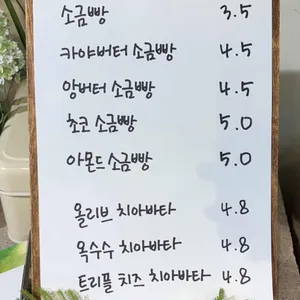 소금빵 3.5
카야버터 소금빵 4.5
앙버터 소금빵 4.5
초코 소금빵 5.0
아몬드 소금빵 5.0
올리브 치아바타 4.8
옥수수 치아바타 4.8
트리플 치즈 치아바타 4.8